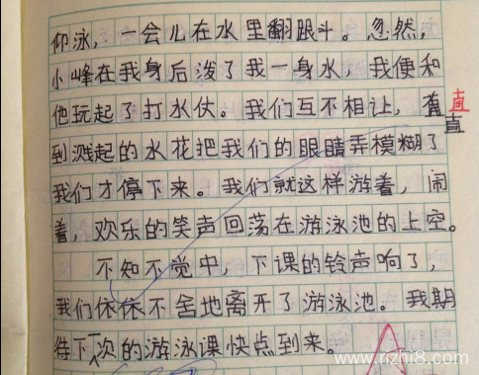 仰泳，一会儿在水里翻跟斗。忽然，
小峰在我身后泼了我一身水，我便和
他玩起了打水仗。我们互不相让，直
直
到溅起的水花把我们的眼睛弄模糊了
我们才停下来。我们就这样游着，闹
着，欢乐的笑声回荡在游泳池的上空。
不知不觉中，下课的铃声响了，
我们依依不舍地离开了游泳池。我期
待下一次的游泳课快点到来。
www.rizhi8.com